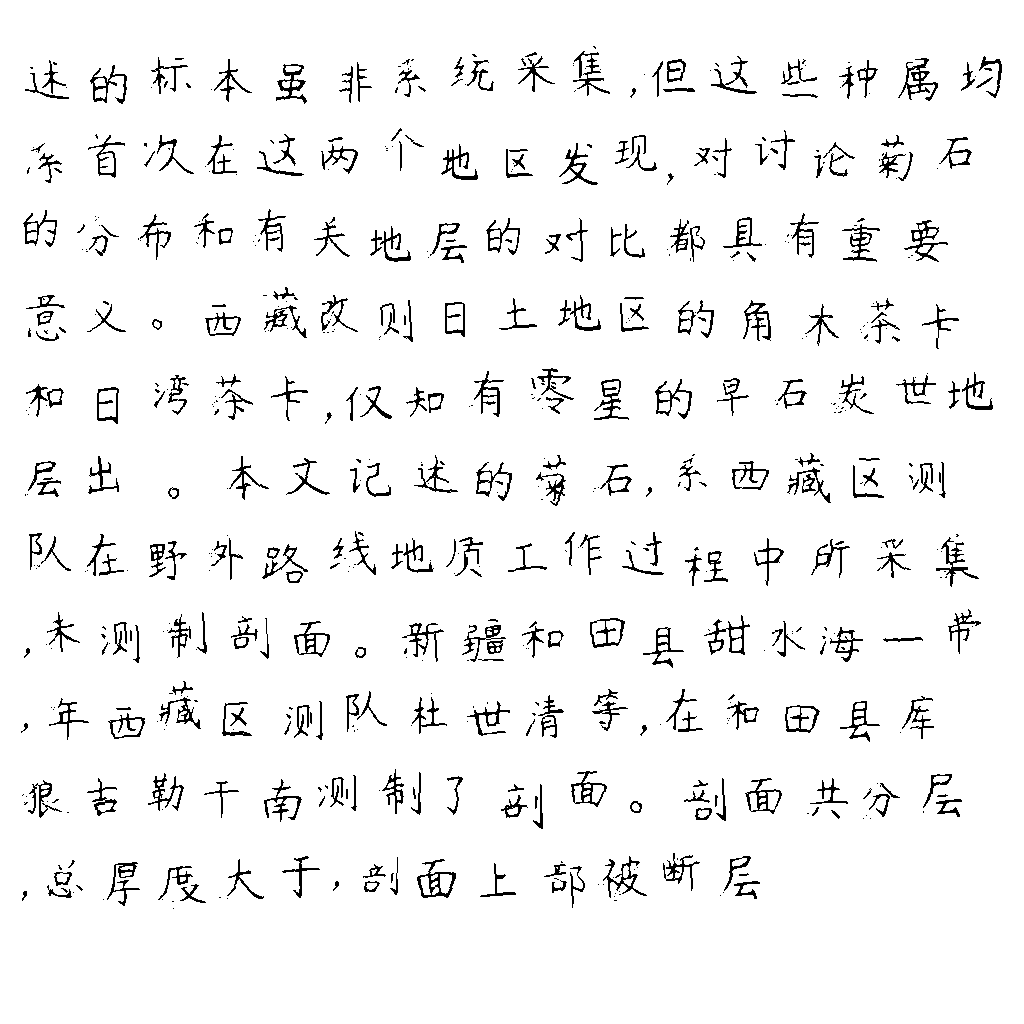 述的标本虽非系统采集,但这些种属均
系首次在这两个地区发现,对讨论菊石
的分布和有关地层的对比都具有重要
意义。西藏改则日土地区的角木茶卡
和日湾茶卡,仅知有零星的早石炭世地
层出。本文记述的菊石,系西藏区测
队在野外路线地质工作过程中所采集
,未测制剖面。新疆和田县甜水海一带
,年西藏区测队杜世清等,在和田县库
狼吉勒干南测制了剖面。剖面共分层
,总厚度大于,剖面上部被断层